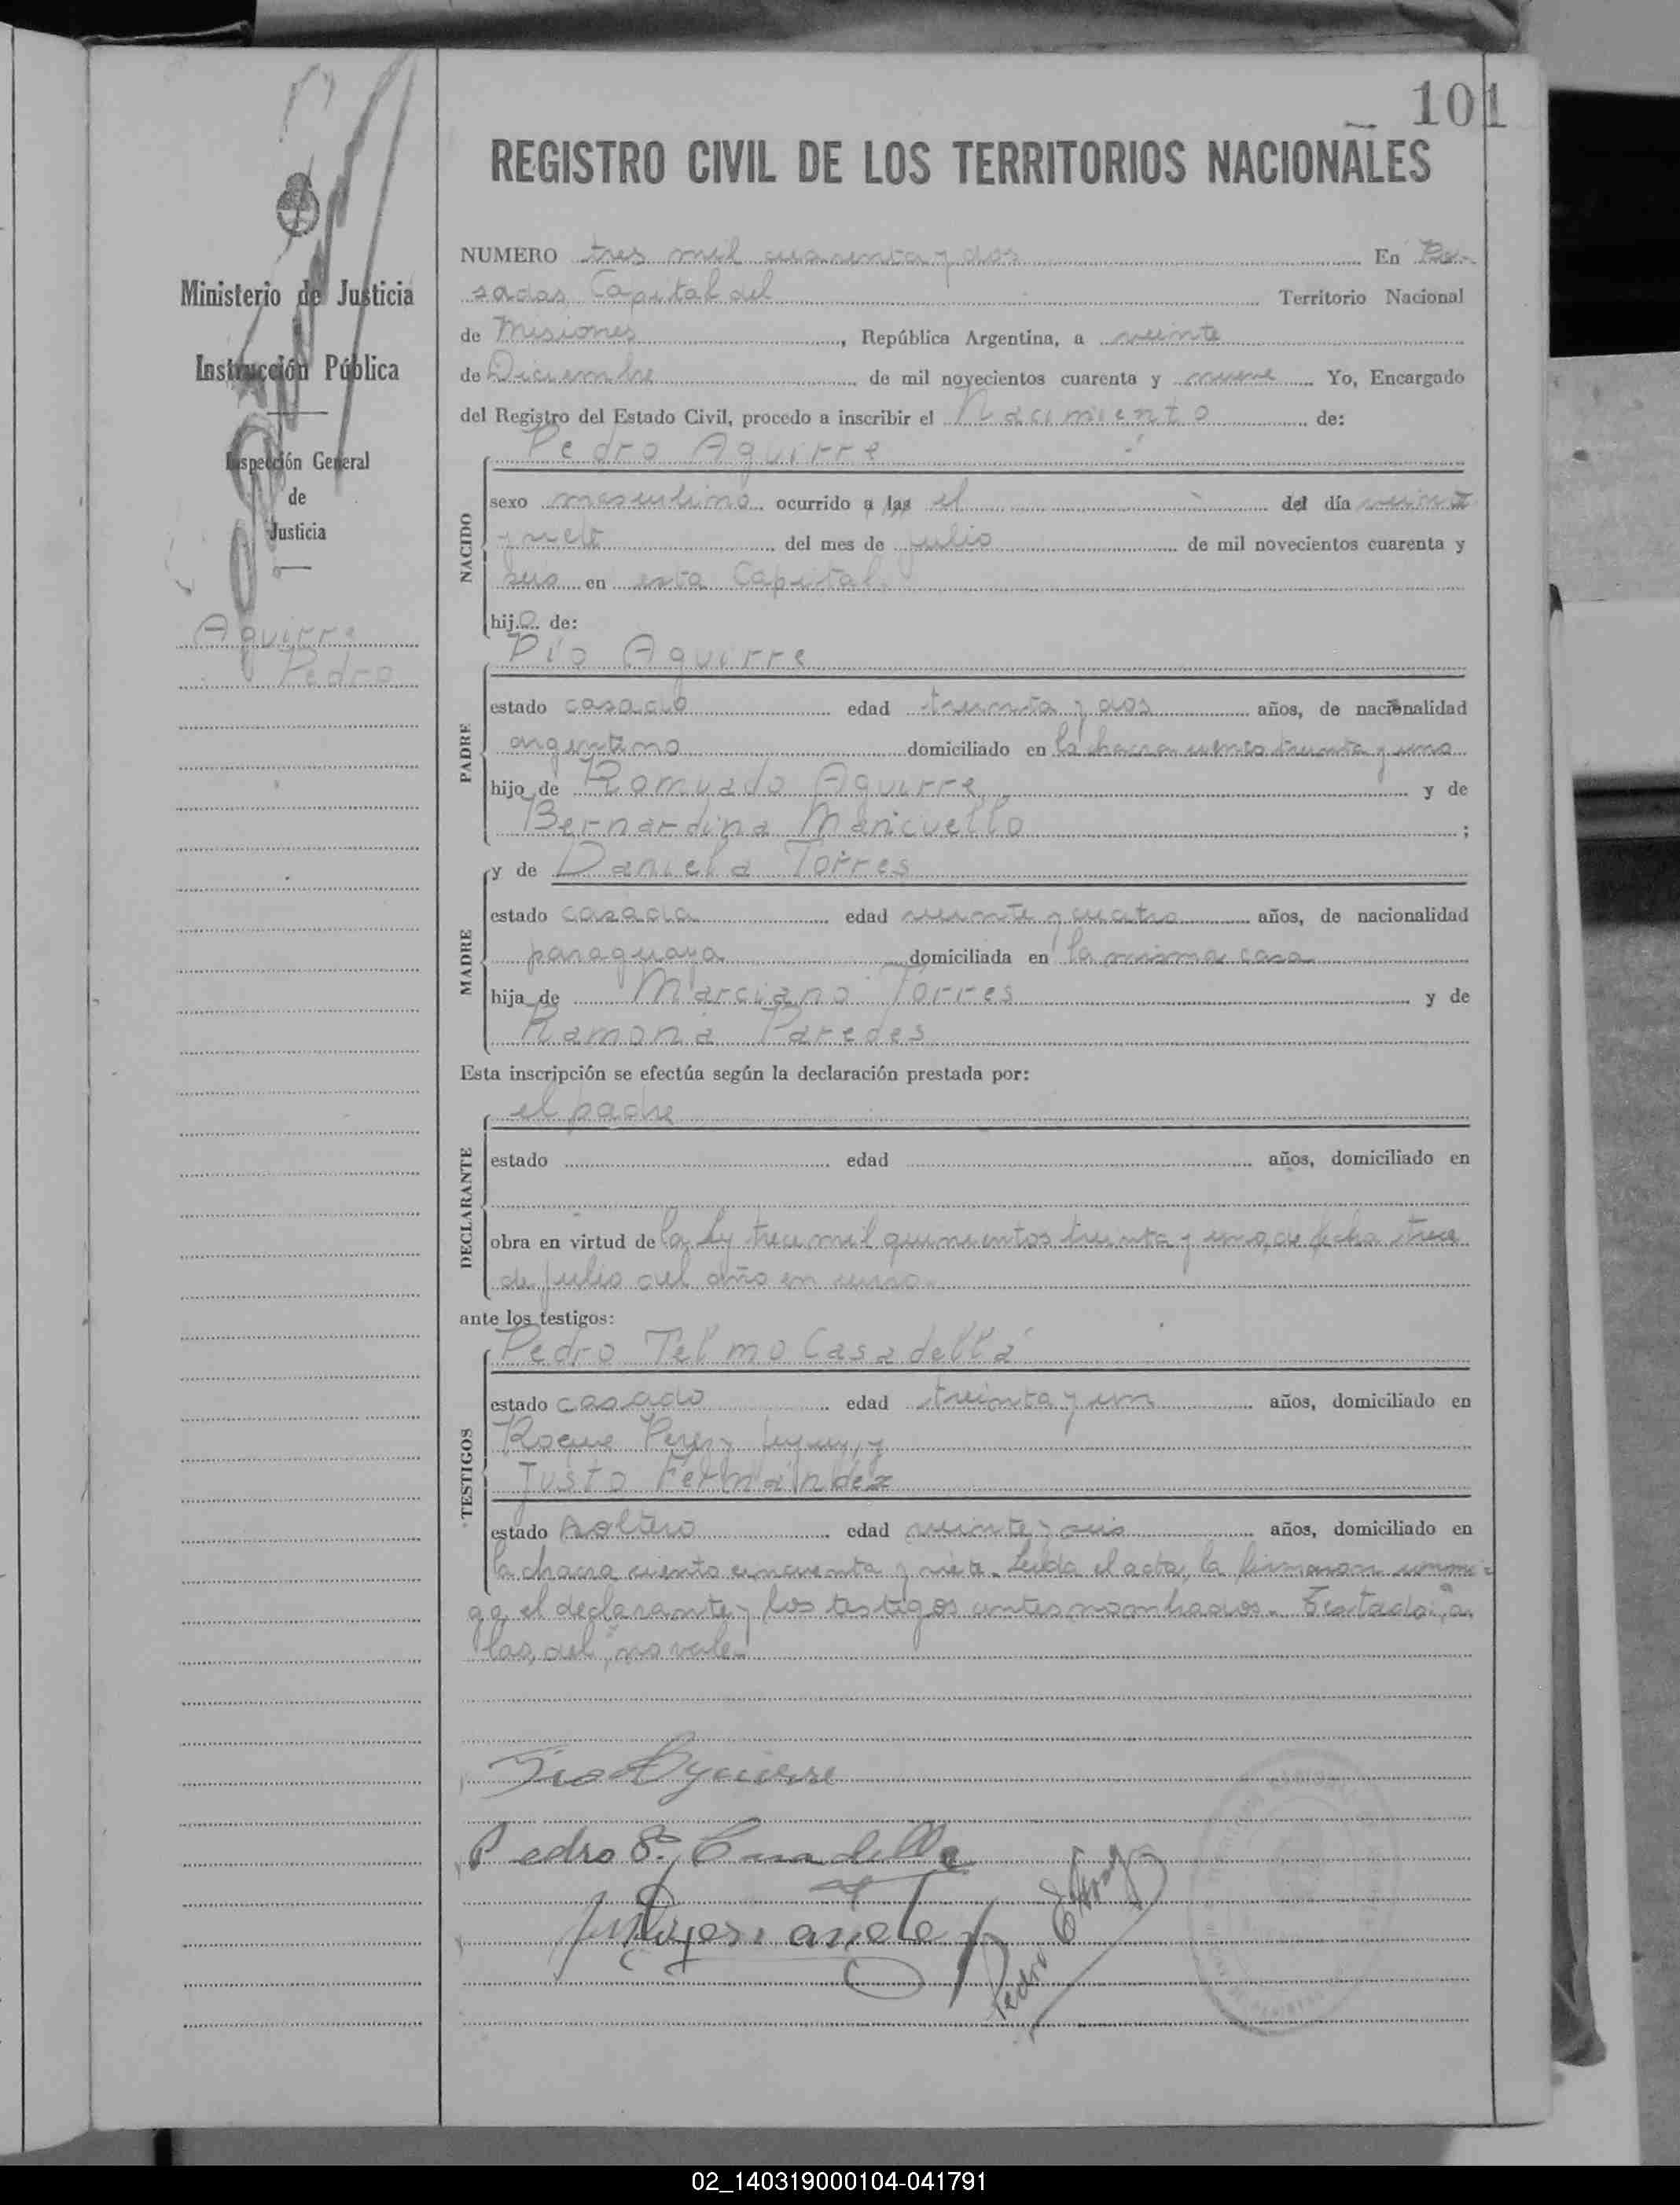 101
REGISTRO CIVIL DE LOS TERRITORIOS NACIONALES
Ministerio de Justicia
Instrucción Pública
Inspección General
de
Justicia
Aguirre
Pedro
NUMERO tres mil cuarenta y dos En Po-
sadas Capital del Territorio Nacional
de Misiones, República Argentina, a veinte
de Diciembre de mil novecientos cuarenta y nueve Yo, Encargado
del Registro del Estado Civil, procedo a inscribir el Nacimiento de:
Pedro Aguirre
NACIDO
sexo masculino ocurrido a las el del día veinti
y siete del mes de julio de mil novecientos cuarenta y
seis en esta Capital
hijo de:
Pío Aguirre
PADRE
estado casado edad treinta y dos años, de nacionalidad
argentino domiciliado en la chacra ciento treinta y uno
hijo de Aguirre y de
Bernardina Mancuello ;
y de Daniela Torres
MADRE
estado casada edad veinte y cuatro años, de nacionalidad
paraguaya domiciliada en la misma casa
hija de Marciano Torres y de
Ramona Paredes
Esta inscripción se efectúa según la declaración prestada por:
el padre
DECLARANTE
estado edad años, domiciliado en
obra en virtud de la ley trece mil quinientos treinta y uno, de fecha trece
de julio del año en curso.
ante los testigos:
Pedro Telmo Casadellá
TESTIGOS
estado casado edad treinta y un años, domiciliado en
Roque Perez y y
Justo Fernández
estado soltero edad veinte y seis años, domiciliado en
la chacra ciento cincuenta y siete. Leída el acta, la firmaron conmi-
go el declarante y los testigos antes nombrados. Testado: "a
las, del", no vale.
Pío Aguirre
Pedro Casadella
Pedro
02_140319000104-041791